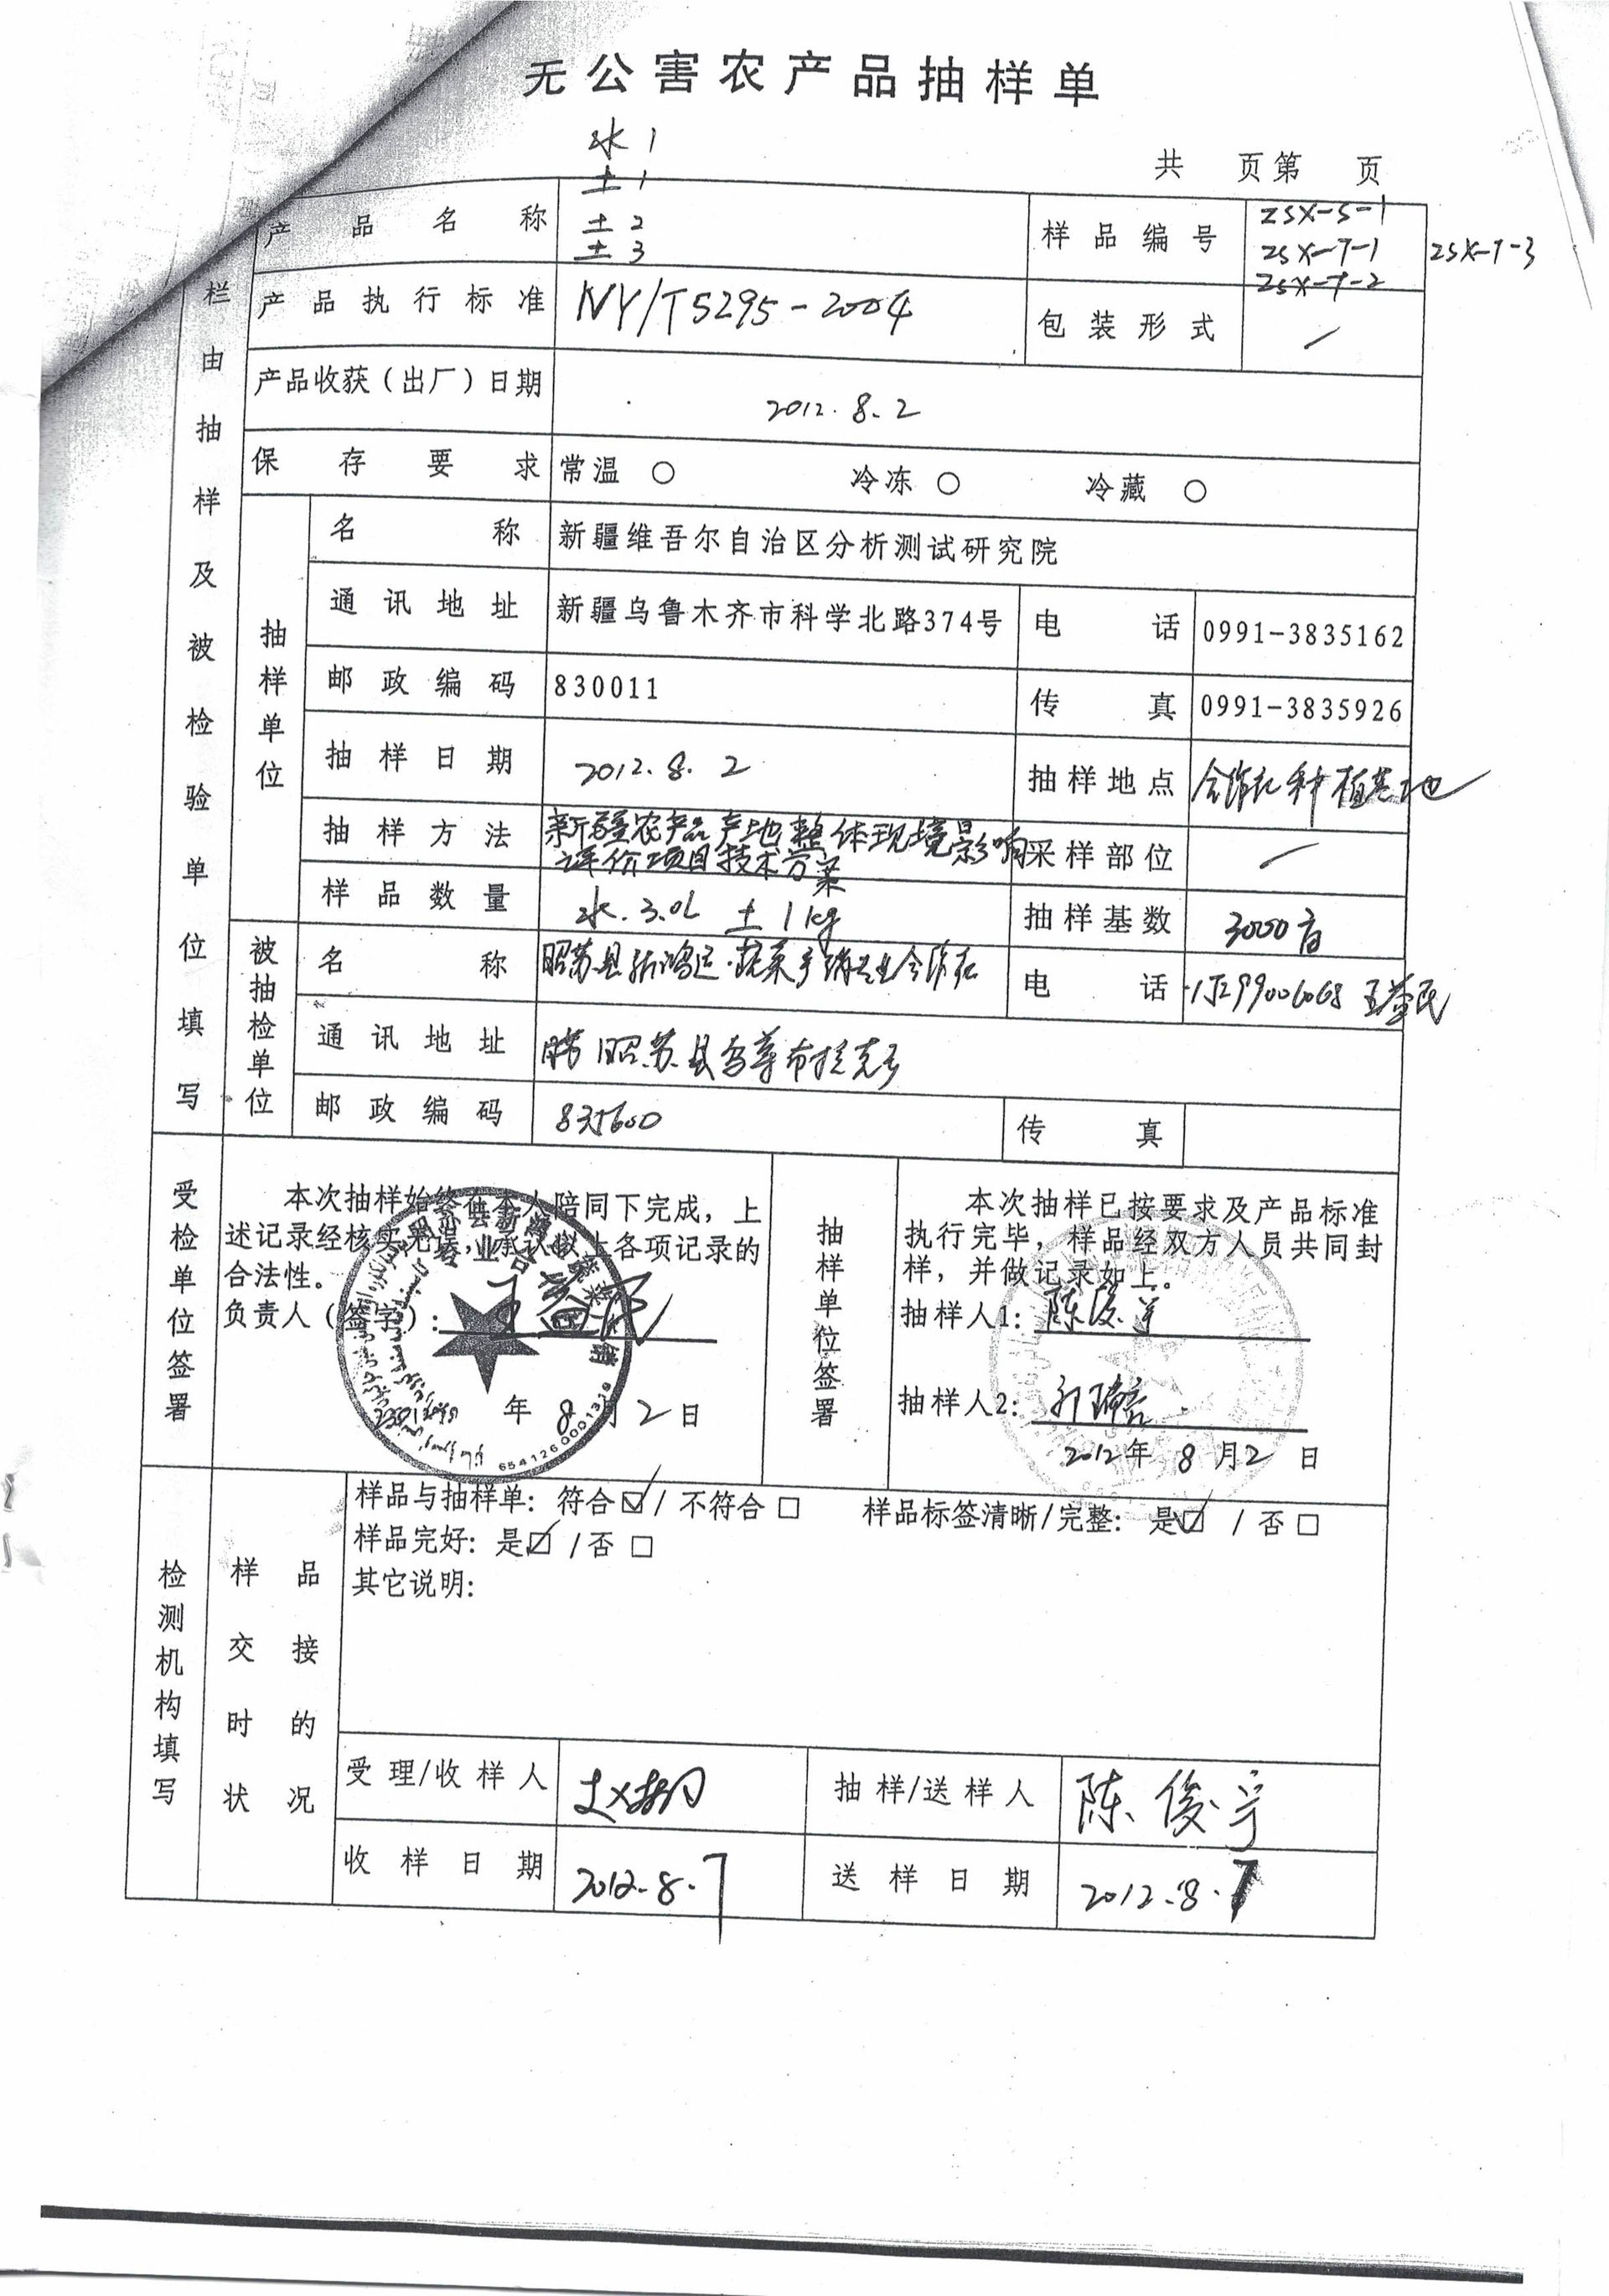 无公害农产品抽样单
共 页第 页
水1
土1
产品名称 土2
土3
样品编号 ZSX-S-1
ZSX-T-1 ZSX-T-3
ZSX-T-2
产品执行标准 NY/T5295-2004 包装形式 /
产品收获(出厂)日期 2012.8.2
保存要求 常温 ○ 冷冻 ○ 冷藏 ○
栏由抽样及被检验单位填写
抽样单位
名称 新疆维吾尔自治区分析测试研究院
通讯地址 新疆乌鲁木齐市科学北路374号 电话 0991-3835162
邮政编码 830011 传真 0991-3835926
抽样日期 2012.8.2 抽样地点 合作社种植基地
抽样方法 新疆农产品产地整体现境影响
评价项目技术方案
采样部位 /
样品数量 水.3.0L 土1kg 抽样基数 3000亩
被抽检单位
名称 昭苏县新鸿运蔬菜产销专业合作社 电话
通讯地址 昭苏县乌尊布拉克乡
邮政编码 835600 传真
受检单位签署
本次抽样始终在本人陪同下完成,上
述记录经核实无误,承认以上各项记录的
合法性。
负责人(签字):
年8月2日
6541260001319
抽样单位签署
本次抽样已按要求及产品标准
执行完毕,样品经双方人员共同封
样,并做记录如上。
抽样人1: 陈俊宇
抽样人2:
2012年8月2日
检测机构填写
样品交接时的状况
样品与抽样单: 符合☑/不符合□ 样品标签清晰/完整: 是☑/否□
样品完好: 是☑/否□
其它说明:
受理/收样人 抽样/送样人 陈俊宇
收样日期 2012.8.7 送样日期 2012.8.7